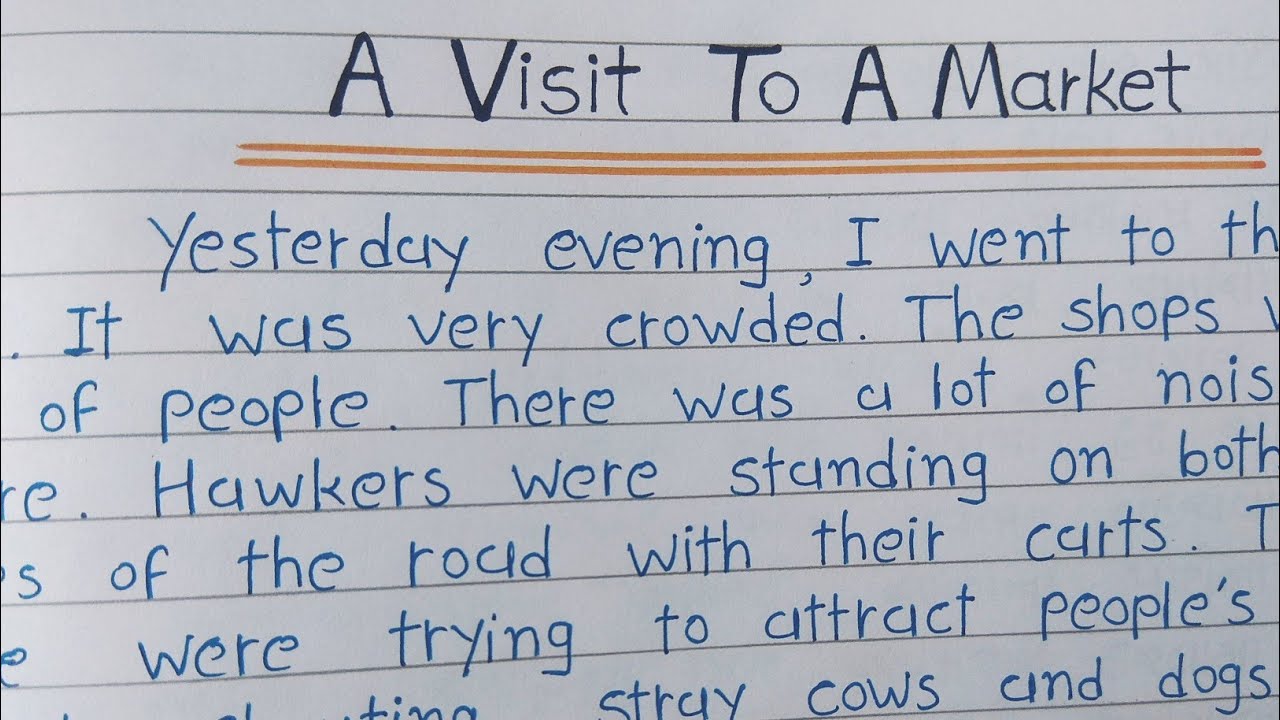 A Visit To A Market
Yesterday evening, I went to th
. It was very crowded. The shops
of people. There was a lot of nois
re. Hawkers were standing on both
s of the road with their carts. T
e were trying to attract people's
stray cows and dogs